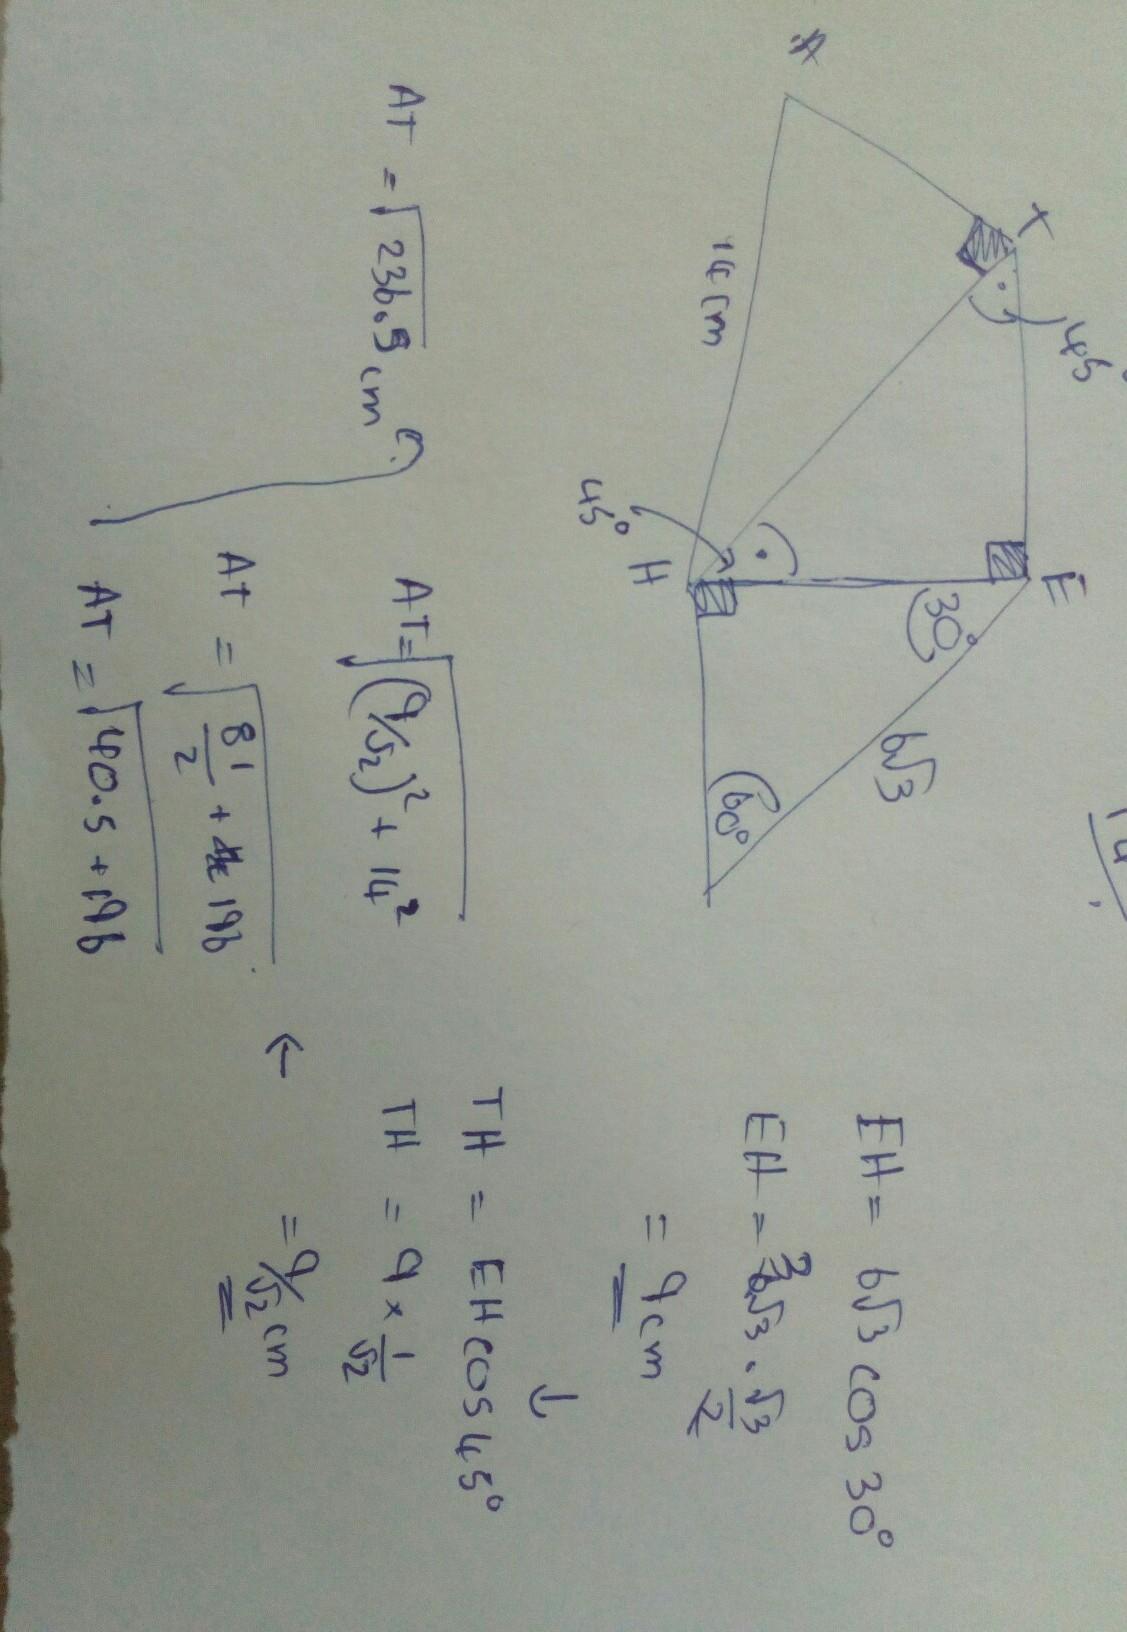 A
T
45
E
H
45°
30°
60°
14 cm
6√3
EH = 6√3 cos 30°
EH = 6√3 . √3/2
= 9 cm
TH = EH cos 45°
TH = 9 × 1/√2
= 9/√2 cm
AT = √(9/√2)² + 14²
AT = √81/2 + 196
AT = √40.5 + 196
AT = √236.5 cm